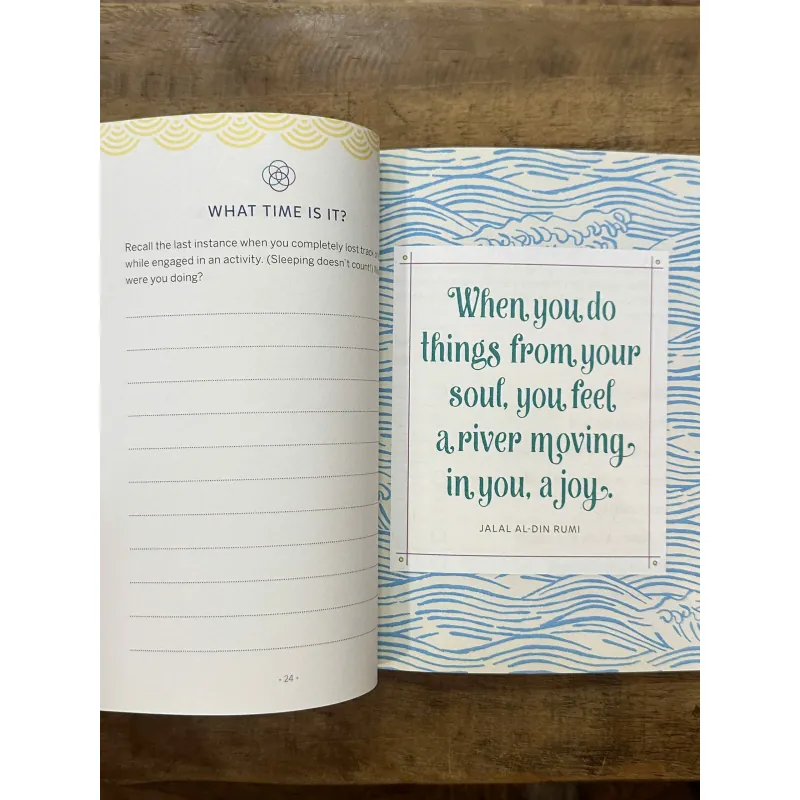 WHAT TIME IS IT?
Recall the last instance when you completely lost track
while engaged in an activity. (Sleeping doesn't count!)
were you doing?
24
When you do
things from your
soul, you feel
a river moving
in you, a joy.
JALAL AL-DIN RUMI